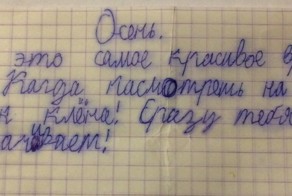 Осень.
это самое красивое в
Кагда пасмотрешь на
клёна! Сразу тебя